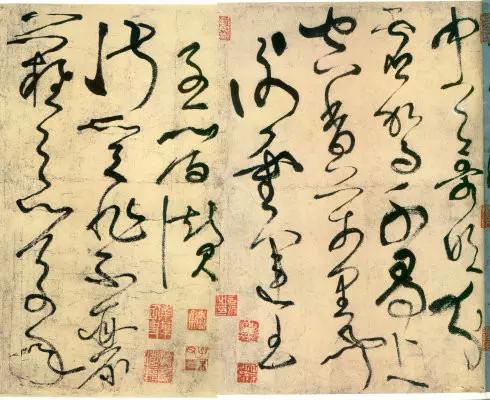 中天哥吹分
虚駕千尋上
空香万里聞
謝靈運王
子晉贊
淑質非不麗
難之以万年